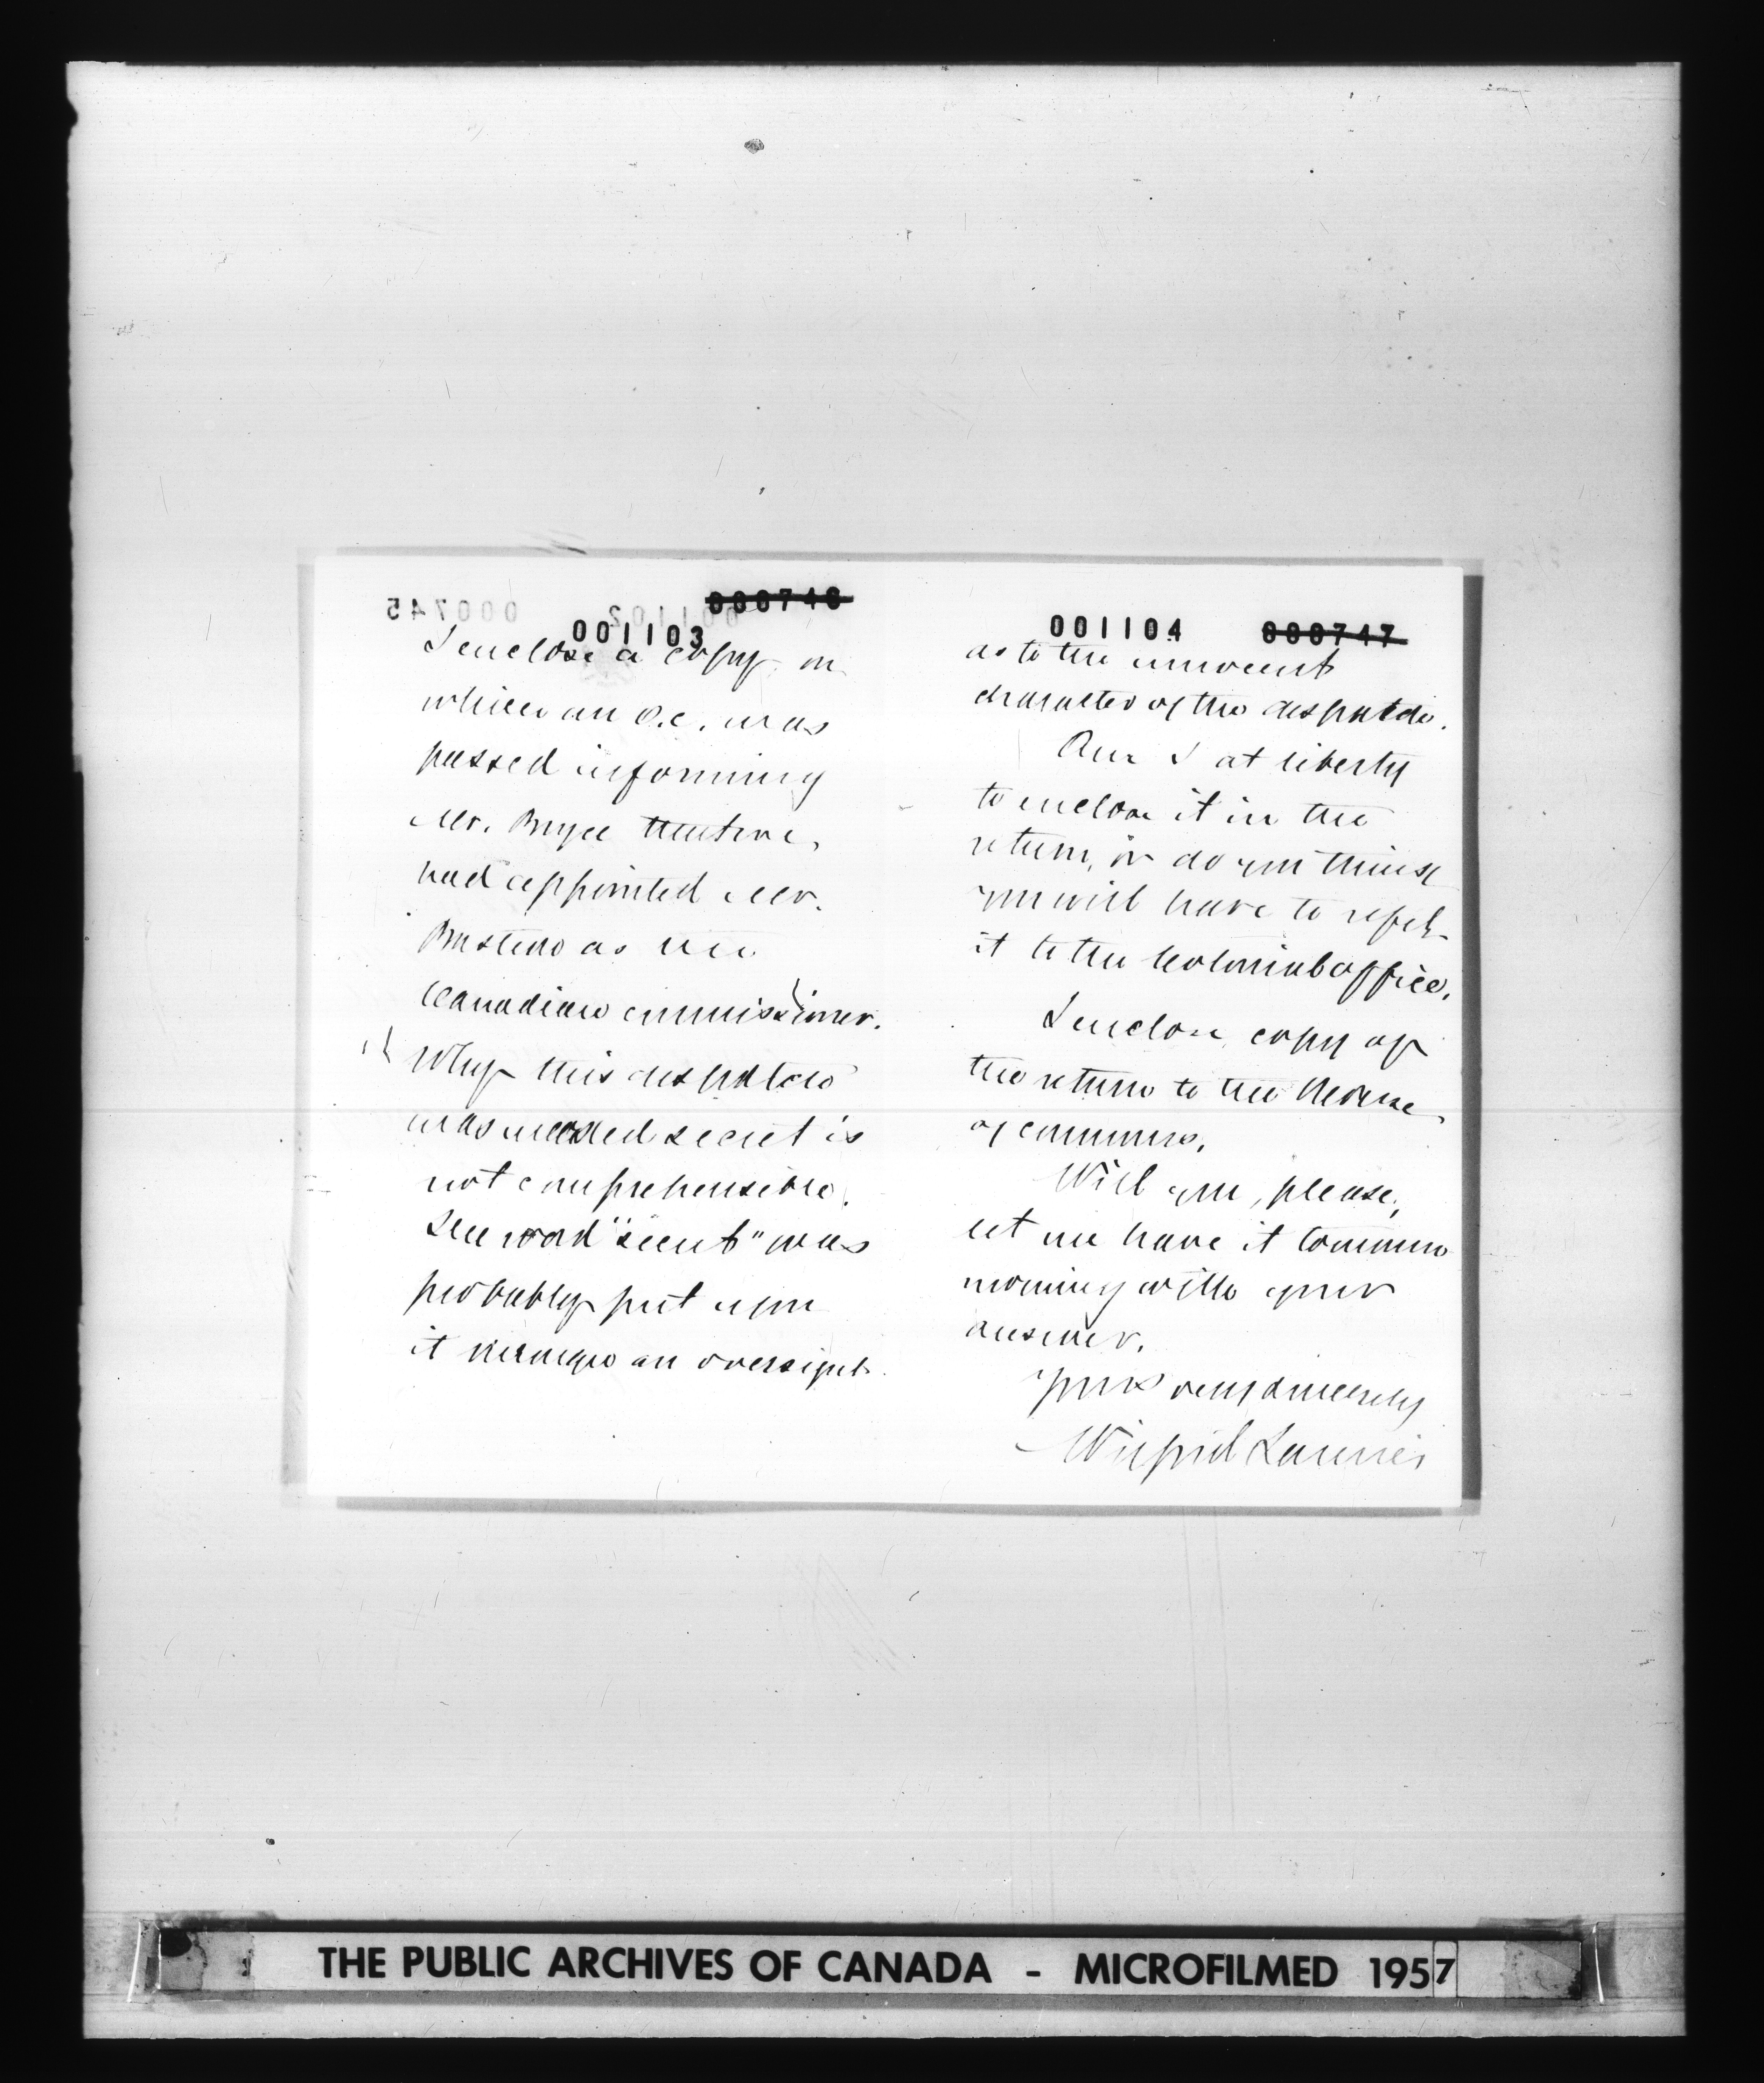 000746
001103
I enclose a copy on
which an O.C. was
passed informing
Mr. Bryce that we
had appointed Mr.
as the
Canadian commissioner.
Why this despatch
was marked secret is
not comprehensible.
The word "secret" was
probably put upon
it through an oversight
001104 000747
as to the innocent
character of the despatch.
Am I at liberty
to enclose it in the
return, or do you think
you will have to refer
it to the Colonial office.
I enclose copy of
the return to the House
of commons.
Will you, please,
let me have it tomorrow
morning with your
answer.
Yours very sincerely
Wilfrid Laurier
THE PUBLIC ARCHIVES OF CANADA - MICROFILMED 1957